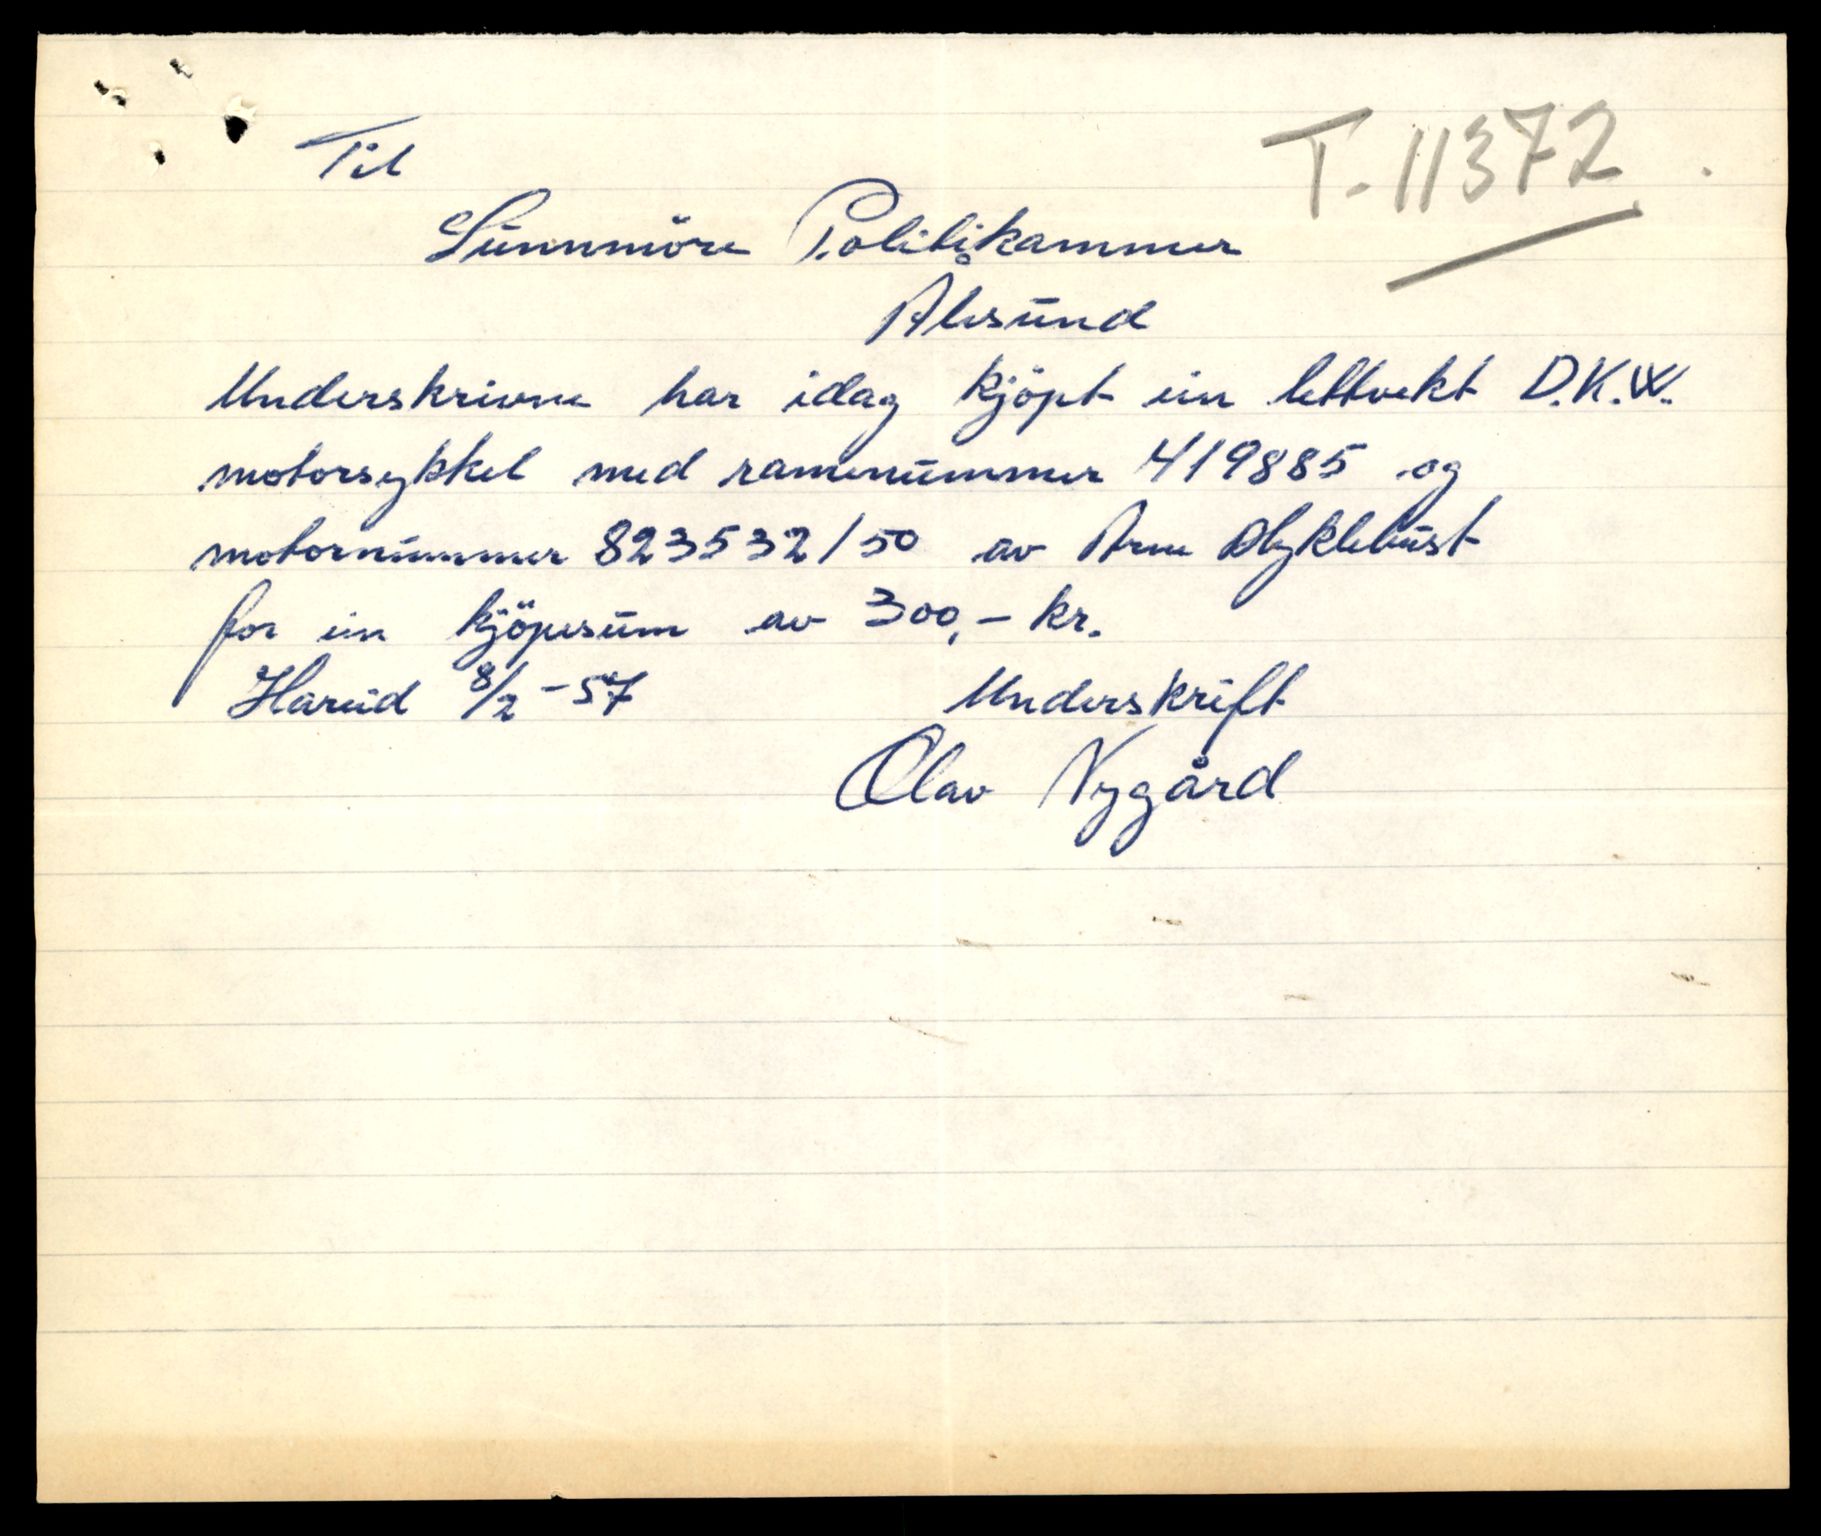 T. 11372.
Til
Sunnmöre Politikammer
Ålesund
Underskrivne har idag kjöpt ein lettvekt D.K.W.
motorsykkel med ramenummer 419885 og
motornummer 823532/50 av Arne Myklebust
for ein kjöpesum av 300,- kr.
Hareid 8/2-57 Underskrift
Olav Nygård